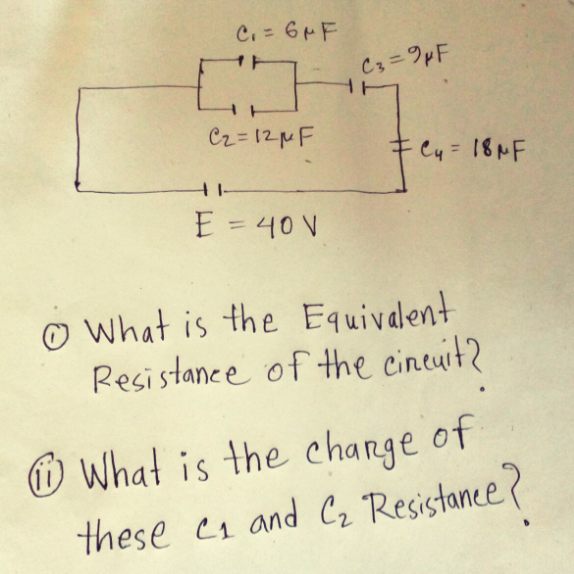 C₁ = 6μF
C₃ = 9μF
C₂ = 12μF
C₄ = 18μF
E = 40 V
(i) What is the Equivalent
Resistance of the circuit?
(ii) What is the charge of
these C₁ and C₂ Resistance?